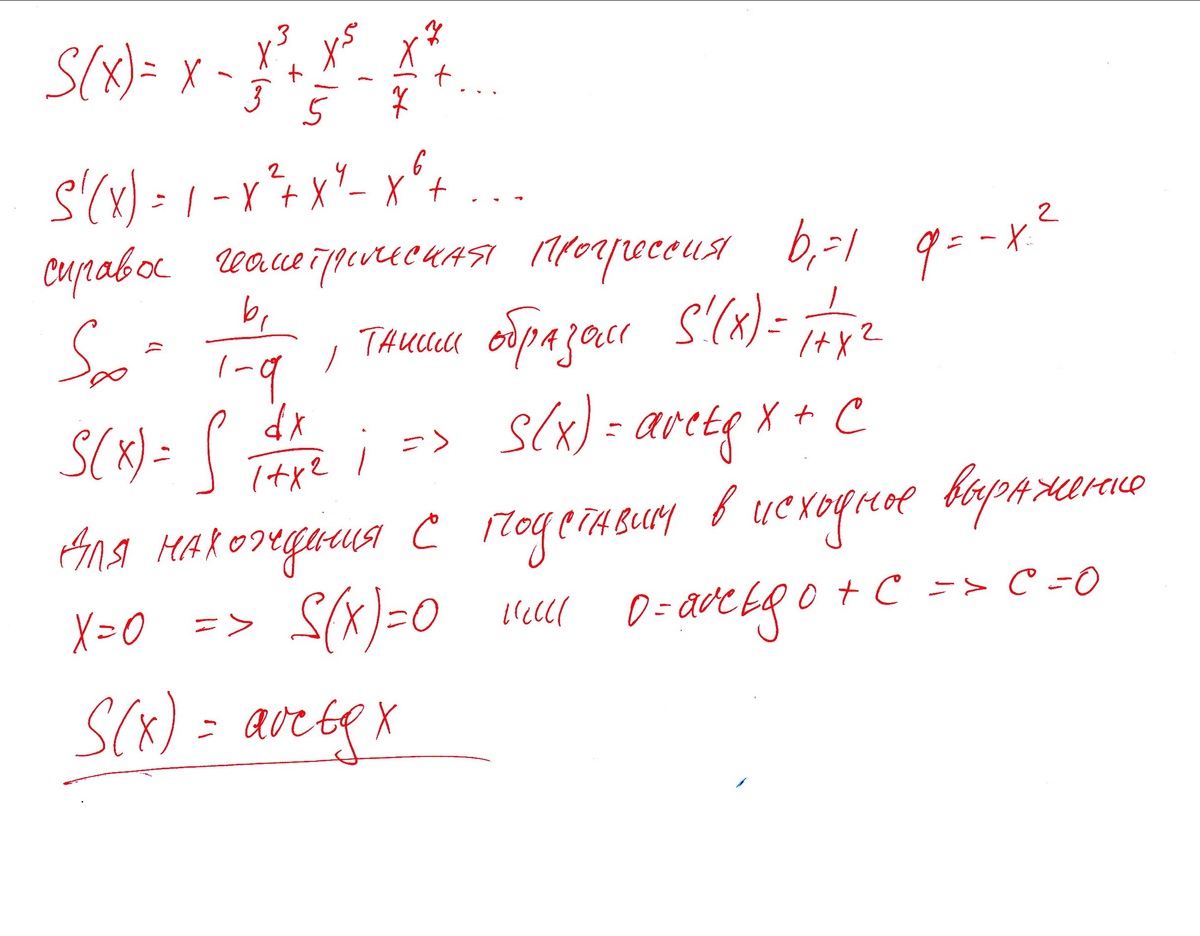 S(x) = x - x³/3 + x⁵/5 - x⁷/7 + ...
S'(x) = 1 - x² + x⁴ - x⁶ + ...
справос геометрическая прогрессия b₁=1 q = -x²
S∞ = b₁/(1-q), таким образом S'(x) = 1/(1+x²)
S(x) = ∫ dx/(1+x²) ; => S(x) = arctg x + C
Для нахождения C подставим в исходное выражение
x=0 => S(x)=0 или 0=arctg 0 + C => C=0
S(x) = arctg x